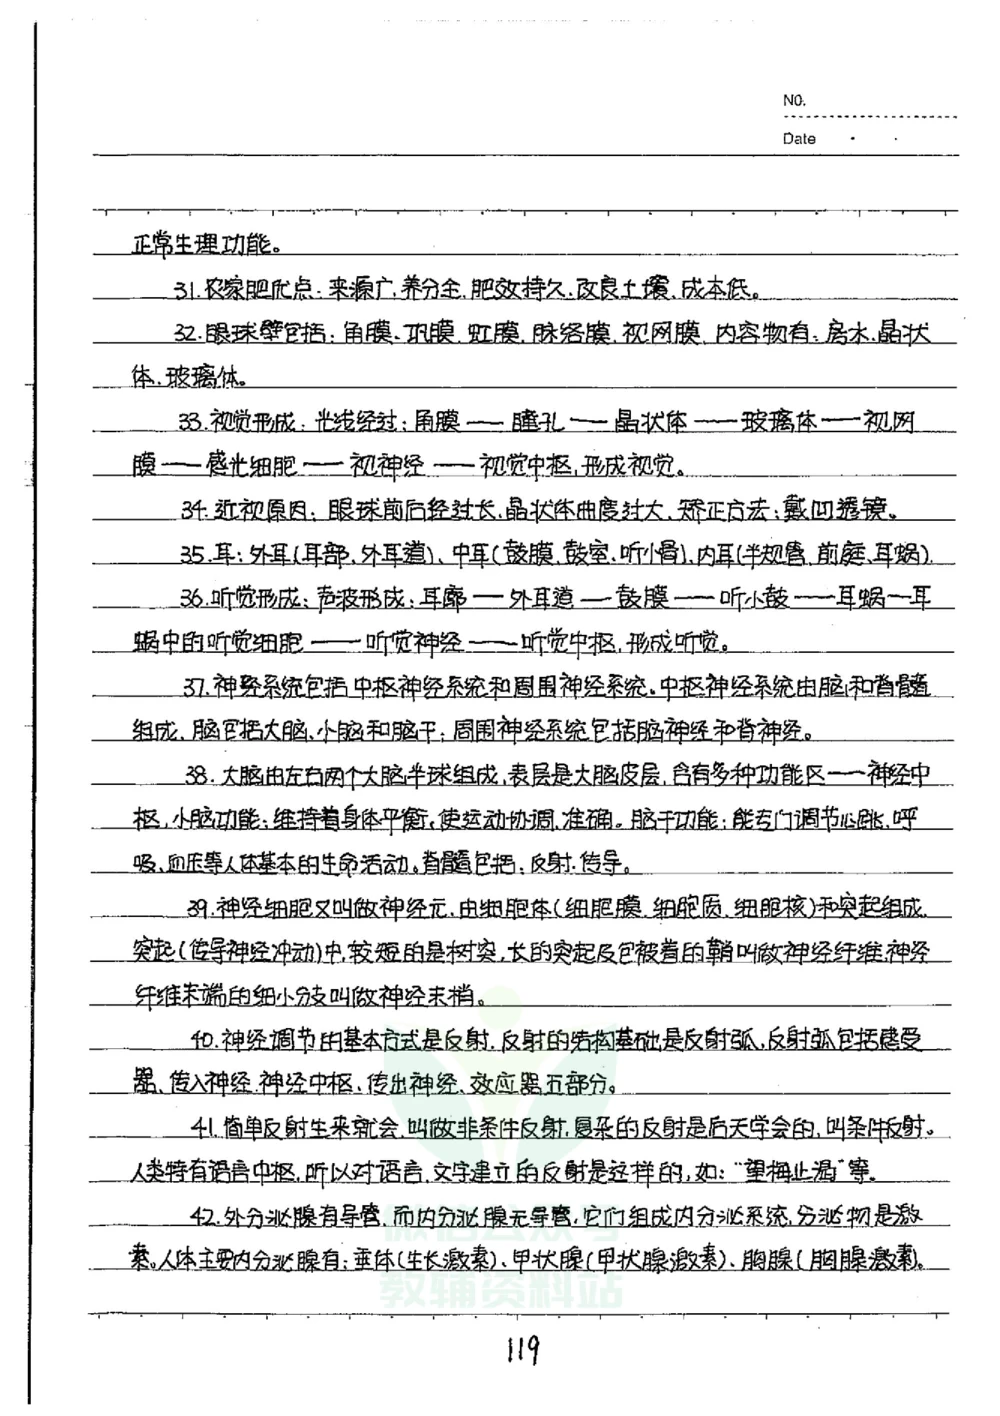 NO.
Date
正常生理功能。
31.农家肥优点:来源广,养分全,肥效持久,改良土壤,成本低。
32.眼球壁包括:角膜、巩膜、虹膜、脉络膜、视网膜,内容物有:房水、晶状
体、玻璃体。
33.视觉形成:光线经过:角膜——瞳孔——晶状体——玻璃体——视网
膜——感光细胞——视神经——视觉中枢,形成视觉。
34.近视原因:眼球前后经过长,晶状体曲度过大,矫正方法:戴凹透镜。
35.耳:外耳(耳部、外耳道)、中耳(鼓膜、鼓室、听小骨),内耳(半规管、前庭、耳蜗).
36.听觉形成:声波形成:耳廓——外耳道——鼓膜——听小鼓——耳蜗—耳
蜗中的听觉细胞——听觉神经——听觉中枢,形成听觉。
37.神经系统包括中枢神经系统和周围神经系统。中枢神经系统由脑和脊髓
组成,脑包括大脑、小脑和脑干;周围神经系统包括脑神经和脊神经。
38.大脑由左右两个大脑半球组成,表层是大脑皮层,含有多种功能区——神经中
枢,小脑功能:维持着身体平衡,使运动协调、准确。脑干功能:能专门调节心跳、呼
吸、血压等人体基本的生命活动。脊髓包括:反射、传导。
39.神经细胞又叫做神经元,由细胞体(细胞膜、细胞质、细胞核)和突起组成,
突起(传导神经冲动)中,较短的是树突,长的突起及包被着的鞘叫做神经纤维,神经
纤维末端的细小分支叫做神经末梢。
40.神经调节的基本方式是反射,反射的结构基础是反射弧,反射弧包括感受
器、传入神经、神经中枢、传出神经、效应器五部分。
41.简单反射生来就会,叫做非条件反射,复杂的反射是后天学会的,叫条件反射。
人类特有语言中枢,所以对语言、文字建立的反射是这样的,如:“望梅止渴”等。
42.外分泌腺有导管,而内分泌腺无导管,它们组成内分泌系统,分泌物是激
素。人体主要内分泌腺有:垂体(生长激素)、甲状腺(甲状腺激素)、胸腺(胸腺激素)、
微信公众号
教辅资料站
119